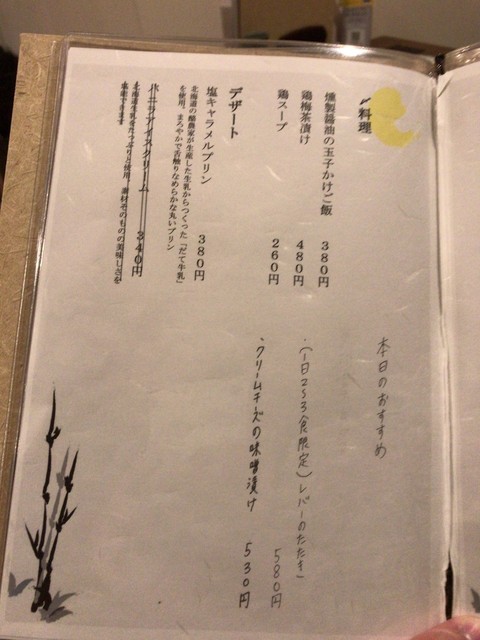 〆料理
燻製醤油の玉子かけご飯 380円
鶏梅茶漬け 480円
鶏スープ 260円
デザート
塩キャラメルプリン 380円
北海道の酪農家が生産した生乳からつくった「だて牛乳」
を使用。まろやかで舌触りなめらかな丸いプリン
バニラアイスクリーム 340円
北海道生乳をたっぷりと使用。素材そのものの美味しさを
堪能できます
本日のおすすめ
・(一日2~3食限定)レバーのたたき 580円
・クリームチーズの味噌漬け 530円